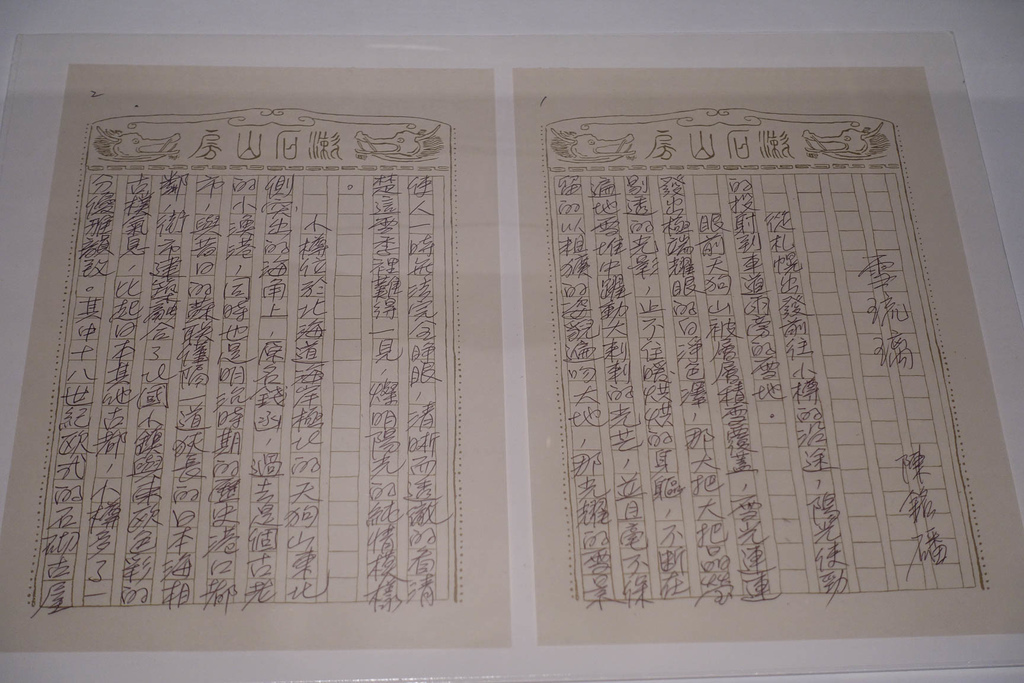 1
漱石山房
雪琉璃
陳銘磻
從札幌出發前往小樽的沿途，陽光使勁
的投射到車道兩旁的雪地。
眼前天狗山被層層積雪覆蓋，雪光連連
發出極端耀眼的白淨色澤，那大把大把晶瑩
剔透的光影，止不住暖烘烘的身軀，不斷在
遍地雪堆中躍動大剌剌的光芒，並且毫不保
留的以粗獷的姿貌遍吻大地，那光耀的雪景
2
漱石山房
使人一時無法完全睜眼，清晰而透澈的看清
楚這雪季裡難得一見，燦明陽光的純情模樣
。
小樽位於北海道海岸極北的天狗山東北
側突出的海面上，原名錢函，過去是個古老
的小漁港，同時也是明治時期的歷史港口都
市，與昔日的蘇聯僅隔一道狹長的日本海相
鄰，街市建築融合了北國小鎮與東歐色彩的
古樸氣息，比起日本其他古都，小樽多了一
分優雅韻致。其中十八世紀歐式的石砌古屋